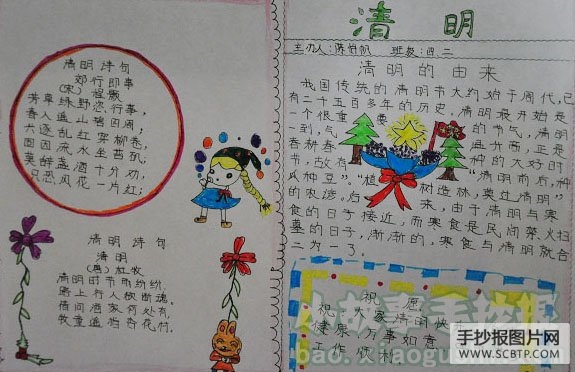 清明诗句
郊行即事
(宋)程颢
芳草绿野恣行事,
春入遥山碧四周;
兴逐乱红穿柳巷,
困临流水坐苔矶;
莫辞盏酒十分劝,
只恐风花一片红;
清明诗句
清明
(唐)杜牧
清明时节雨纷纷,
路上行人欲断魂。
借问酒家何处有,
牧童遥指杏花村。
清明
主办人:陈 帆 班级:四二
清明的由来
我国传统的清明节大约始于周代,已
有二千五百多年的历史。清明最开始是
一个很重要的节气,清明
一到,气
春耕春 种的大好时
节,故有“清明前后,种
瓜种豆”“植树造林,莫过清明”
的农谚。后来,由于清明与寒
食的日子接近,而寒食是民间禁火扫
墓的日子,渐渐的,寒食与清明就合
二为一了。
祝愿
祝大家清明快
健康 万事如意
工作顺利。
手抄报图片网
WWW.SCBTP.COM
bao.xiaogu